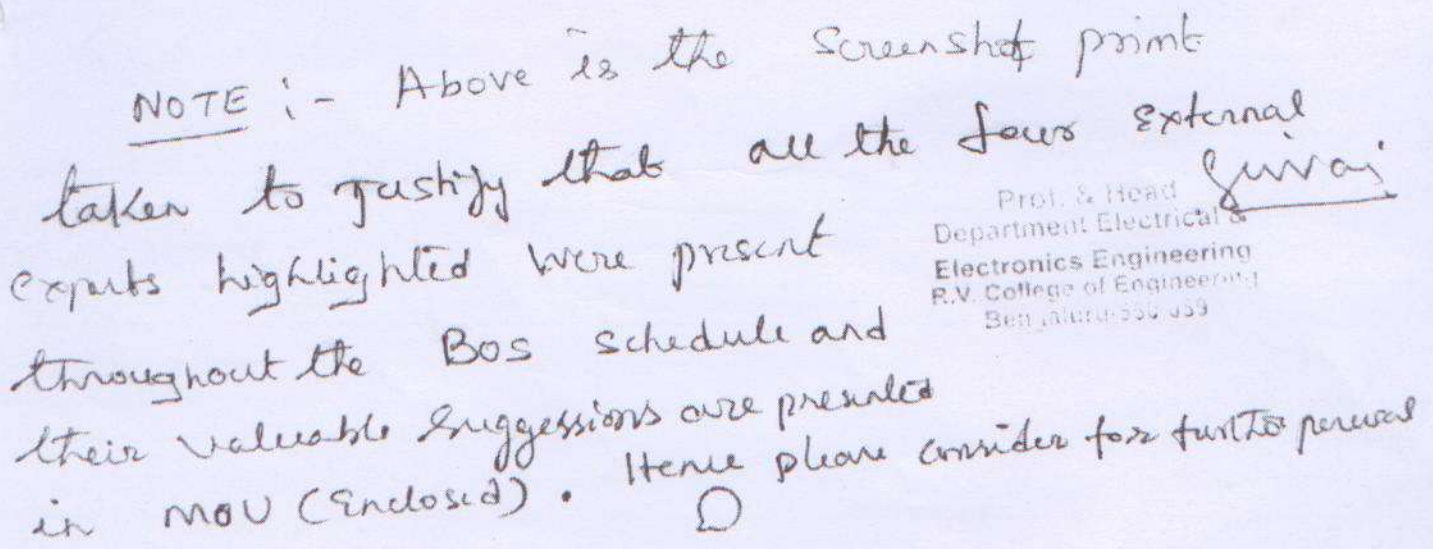 NOTE :- Above is the Screenshot print
taken to Justify that all the four External
experts highlighted were present
throughout the BOS schedule and
their valuable Suggessions are presented
in MOU (Enclosed). Hence please consider for further perusal
Prof. & Head
Department Electrical &
Electronics Engineering
R.V. College of Engineering
Bengaluru-560 059